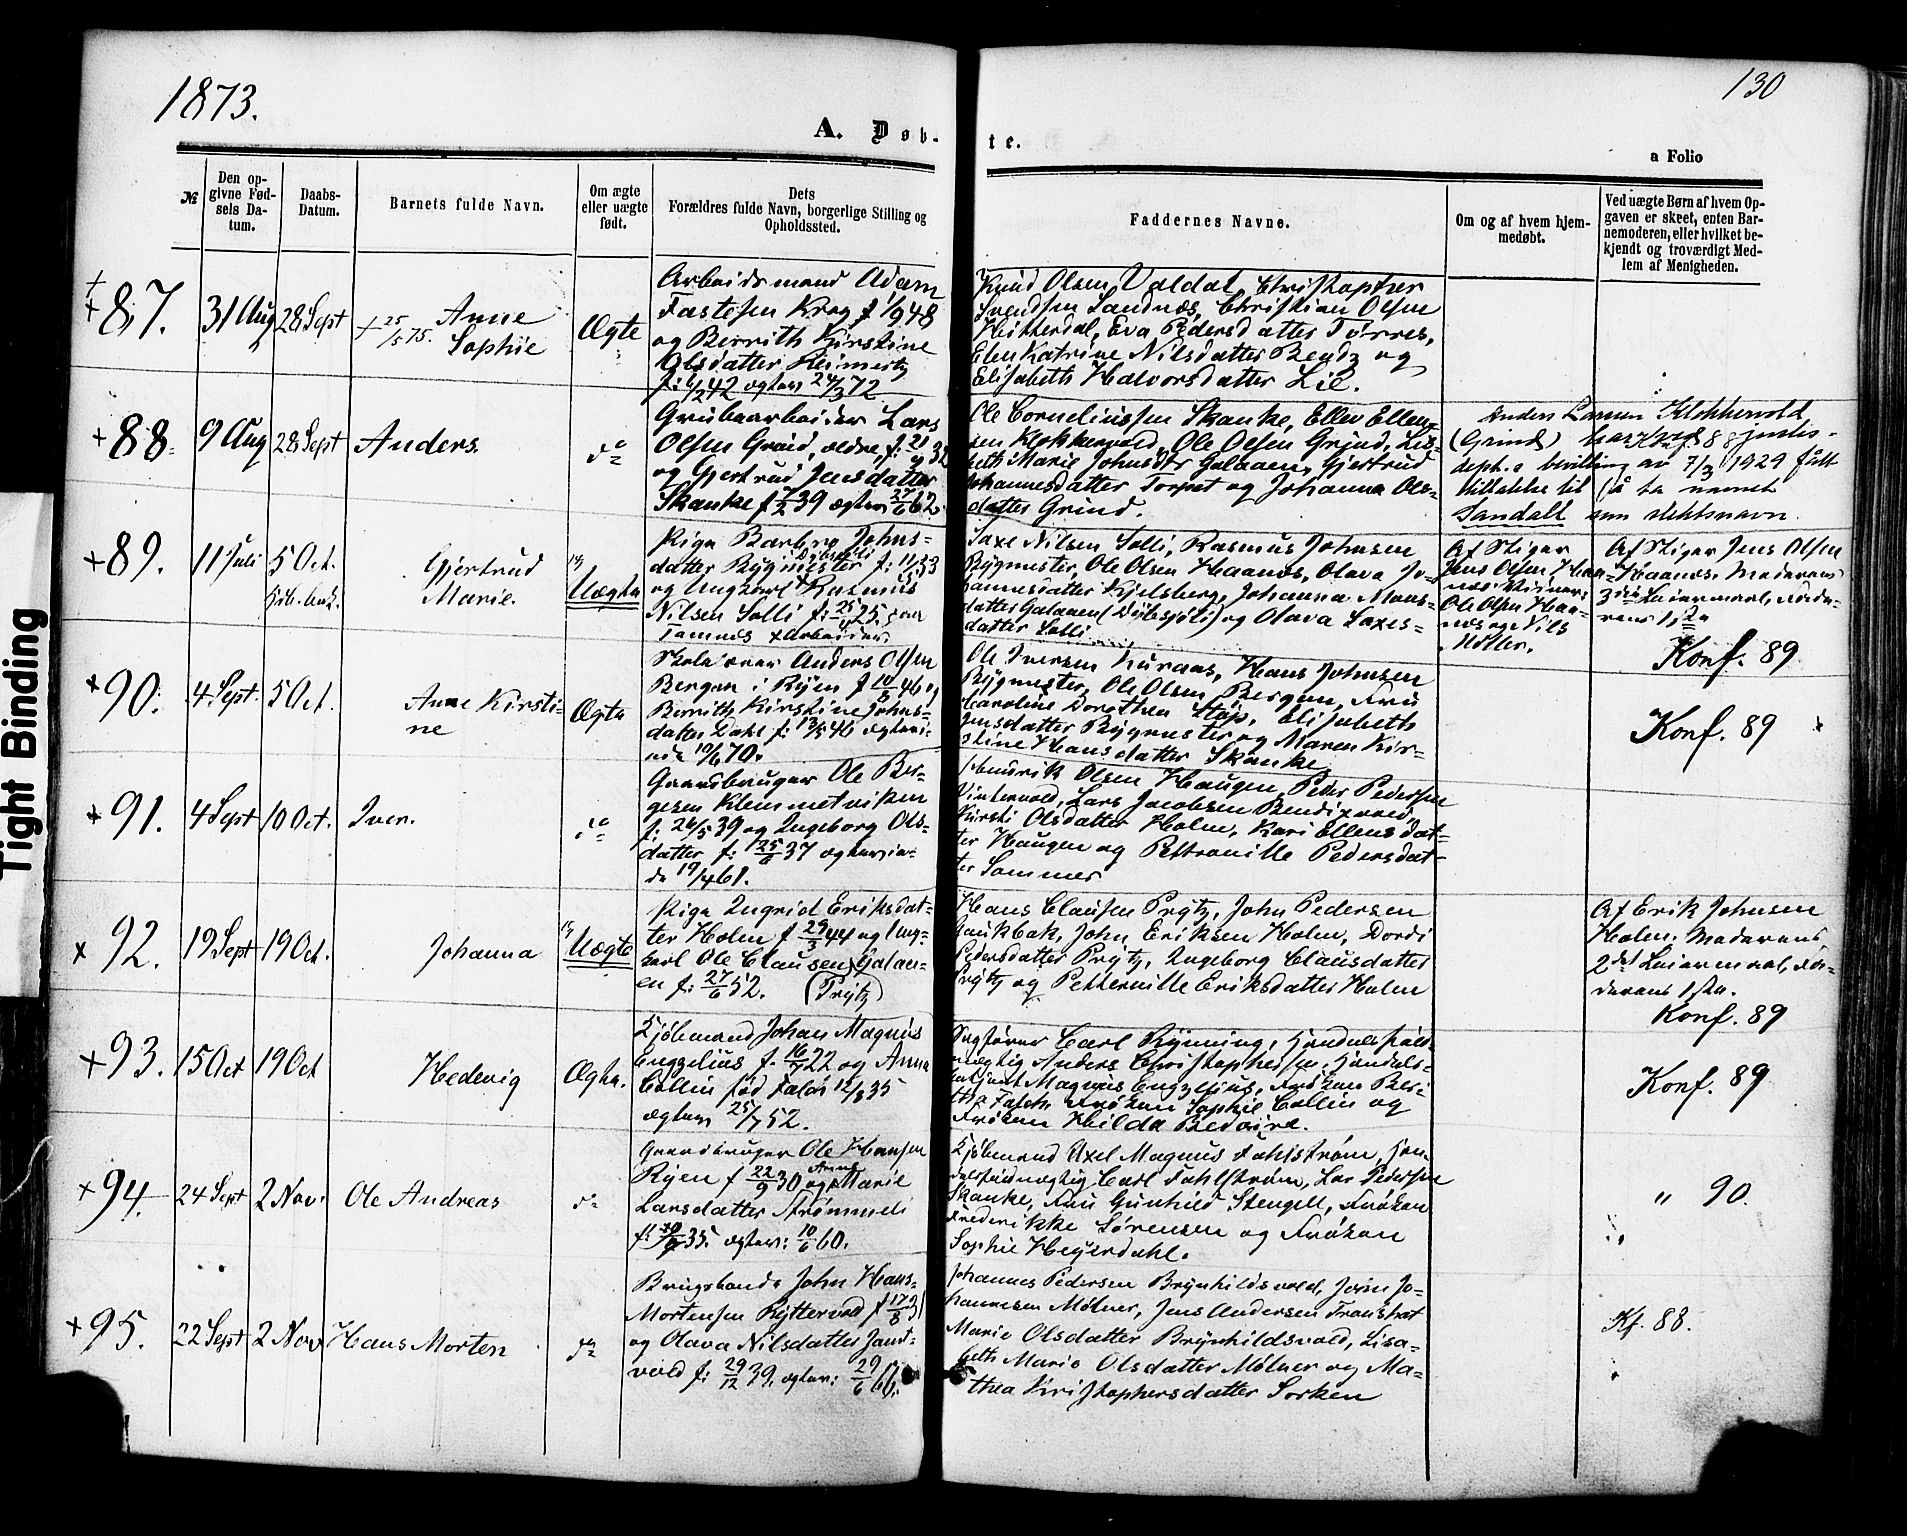 1873.
130
A. Døb-
te.
a Folio
№
Den op-
givne Fød-
sels Da-
tum.
Daabs-
Datum.
Barnets fulde Navn.
Om ægte
eller uægte
født.
Dets
Forældres fulde Navn, borgerlige Stilling og
Opholdssted.
Faddernes Navne.
Om og af hvem hjem-
medøbt.
Ved uægte Børn af hvem Op-
gaven er skeet, enten Bar-
nemoderen, eller hvilket be-
kjendt og troværdigt Med-
lem af Menigheden.
+87. 31 Aug 28 Sept
+ 25/5 75. Anne
Sophie
Ægte
Arbeidsmand Adam
Fastesen Krog f 1/9 48
og Berrith Kirstine
Olsdatter Reimertz
42 ægtev 24/3 72
Knud Olsen Valdal, Christopher
Svendsen Sandnæs, Christian Olsen
Hitterdal, Eva Pedersdatter Tørres,
Elen Katrine Nilsdatter Bendz og
Elisabeth Halvorsdatter Lie.
+88. 9 Aug 28 Sept Anders. do
Grubearbeider Lars
Olsen Grind, ældre, f. 21/9 32
og Gjertrud Jensdatter
Skanke f 7/2 39 ægtev 27/6 62.
Ole Corneliussen Skanke, Ellev Ellev-
sen Klokkervold, Ole Olsen Grind, Lis-
beth Marie Johnsdtr Galaaen, Gjertrud
Johannesdatter Torpet og Johanna Ols-
datter Grind.
Anders Larsen Klokkervold
(Grind) har justis-
dept.s bevilling av 7/3 1929 fått
tillatelse til å ta navnet
Sandall som slektsnavn.
+89. 11 Juli 5 Oct.
Gjertrud
Marie.
Uægte
Pige Barbro Johns-
datter Bygmester f: 11/ 33
og Ungkarl Rasmus
Nilsen Solli f: 25/ 25.
Tamnes Arbeider.
Saxe Nilsen Solli, Rasmus Johnsen
Bygmester, Ole Olsen Haanæs, Olava Jo-
hannesdatter Kjelsberg, Johanna Mons-
datter Galaaen (Dybsjøli) og Olava Saxes-
datter Solli
Af Stiger
Jens Olsen Haa-
næs
Ole Olsen Haa-
næs og Nils
Møller.
Af Stiger Jens Olsen
Haanæs. Moderens
3die Leiermaal, Fade-
rens 1ste
Konf. 89
+90. 4 Sept. 5 Oct.
Anne Kirsti-
ne
Ægte
Anders Olsen
Bergan i Ryen f 10/8 46 og
Berrith Kirstine Johns-
datter Dahl f: 13/5 46 ægtevi-
ede 10/6 70.
Ole Iversen Kuraas, Hans Johnsen
Bygmester, Ole Olsen Bergan, Fru
Caroline Dorothea Støp, Elisabeth
Jensdatter Bygmester og Maren Kir-
stine Hansdatter Skanke
Konf. 89
+91. 4 Sept 10 Oct. Iver. do
Gaardbruger Ole Ber-
gesen Klemmetviken
f: 26/5 39 og Ingeborg Ols-
datter f: 25/6 37 ægtevie-
de 19/4 61.
Henrik Olsen Haugen, Peder Pedersen
Vintervold, Lars Jacobsen Bendixvold,
Kirsti Olsdatter Holm, Kari Ellensdat-
ter Haugen og Pettronille Pedersdat-
ter Sommer
+92. 19 Sept 19 Oct.
Johanna
Uægte
Pige Ingrid Eriksdat-
ter Holm f 29/3 44 og Ung-
karl Ole Clausen Galaa-
en f: 27/6 52. (Prytz)
Hans Clausen Prytz, John Pedersen
Gaukbak, John Eriksen Holm, Dordi
Pedersdatter Prytz, Ingeborg Clausdatter
Prytz og Petternille Eriksdatter Holm
Af Erik Johnsen
Holm. Moderens
2det Leiermaal, Fa-
derens 1ste.
Konf. 89
+93. 15 Oct 19 Oct
Hedevig
Ægte.
Kjøbmand Johan Magnus
Engzelius f. 16/7 22 og Anna
Collin fød Falås 12/8 35
ægtev 25/7 52.
Sagfører Carl Rynning, Handelsfuld-
mægtig Anders Christophersen, Handels-
betjent Magnus Engzelius, Frøken Beri-
the Fasch, Frøken Sophie Collin og
Frøken Hilda Bedoire.
Konf. 89
+94. 24 Sept 2 Nov. Ole Andreas do
Gaardbruger Ole Hansen
Ryen f 22/9 30 og Anne Marie
Larsdatter Strømmeli
35. ægtev: 10/6 60.
Kjøbmand Axel Magnus Fahlstrøm, Han-
delsfuldmægtig Carl Fahlstrøm, Lars Pedersen
Skanke, Fru Gunhild Stengell, Frøken
Frederikke Sørensen og Frøken
Sophie Heyerdahl.
" 90.
+95. 22 Sept 2 Nov Hans Morten do
Brugsbonde John Hans
Mortensen Ryttervold f 17/8 31
og Olava Nilsdatter Sand-
vold f: 29/12 39, ægtev: 29/6 66.
Johannes Pedersen Brynhildsvold, Jørn Jo-
hannesen Mølner, Jens Andersen Tronshat
Marie Olsdatter Brynhildsvold, Lisa-
beth Marie Olsdatter Mølner og Ma-
thea Kristophersdatter Sorken
Kf. 88.
Tight Binding